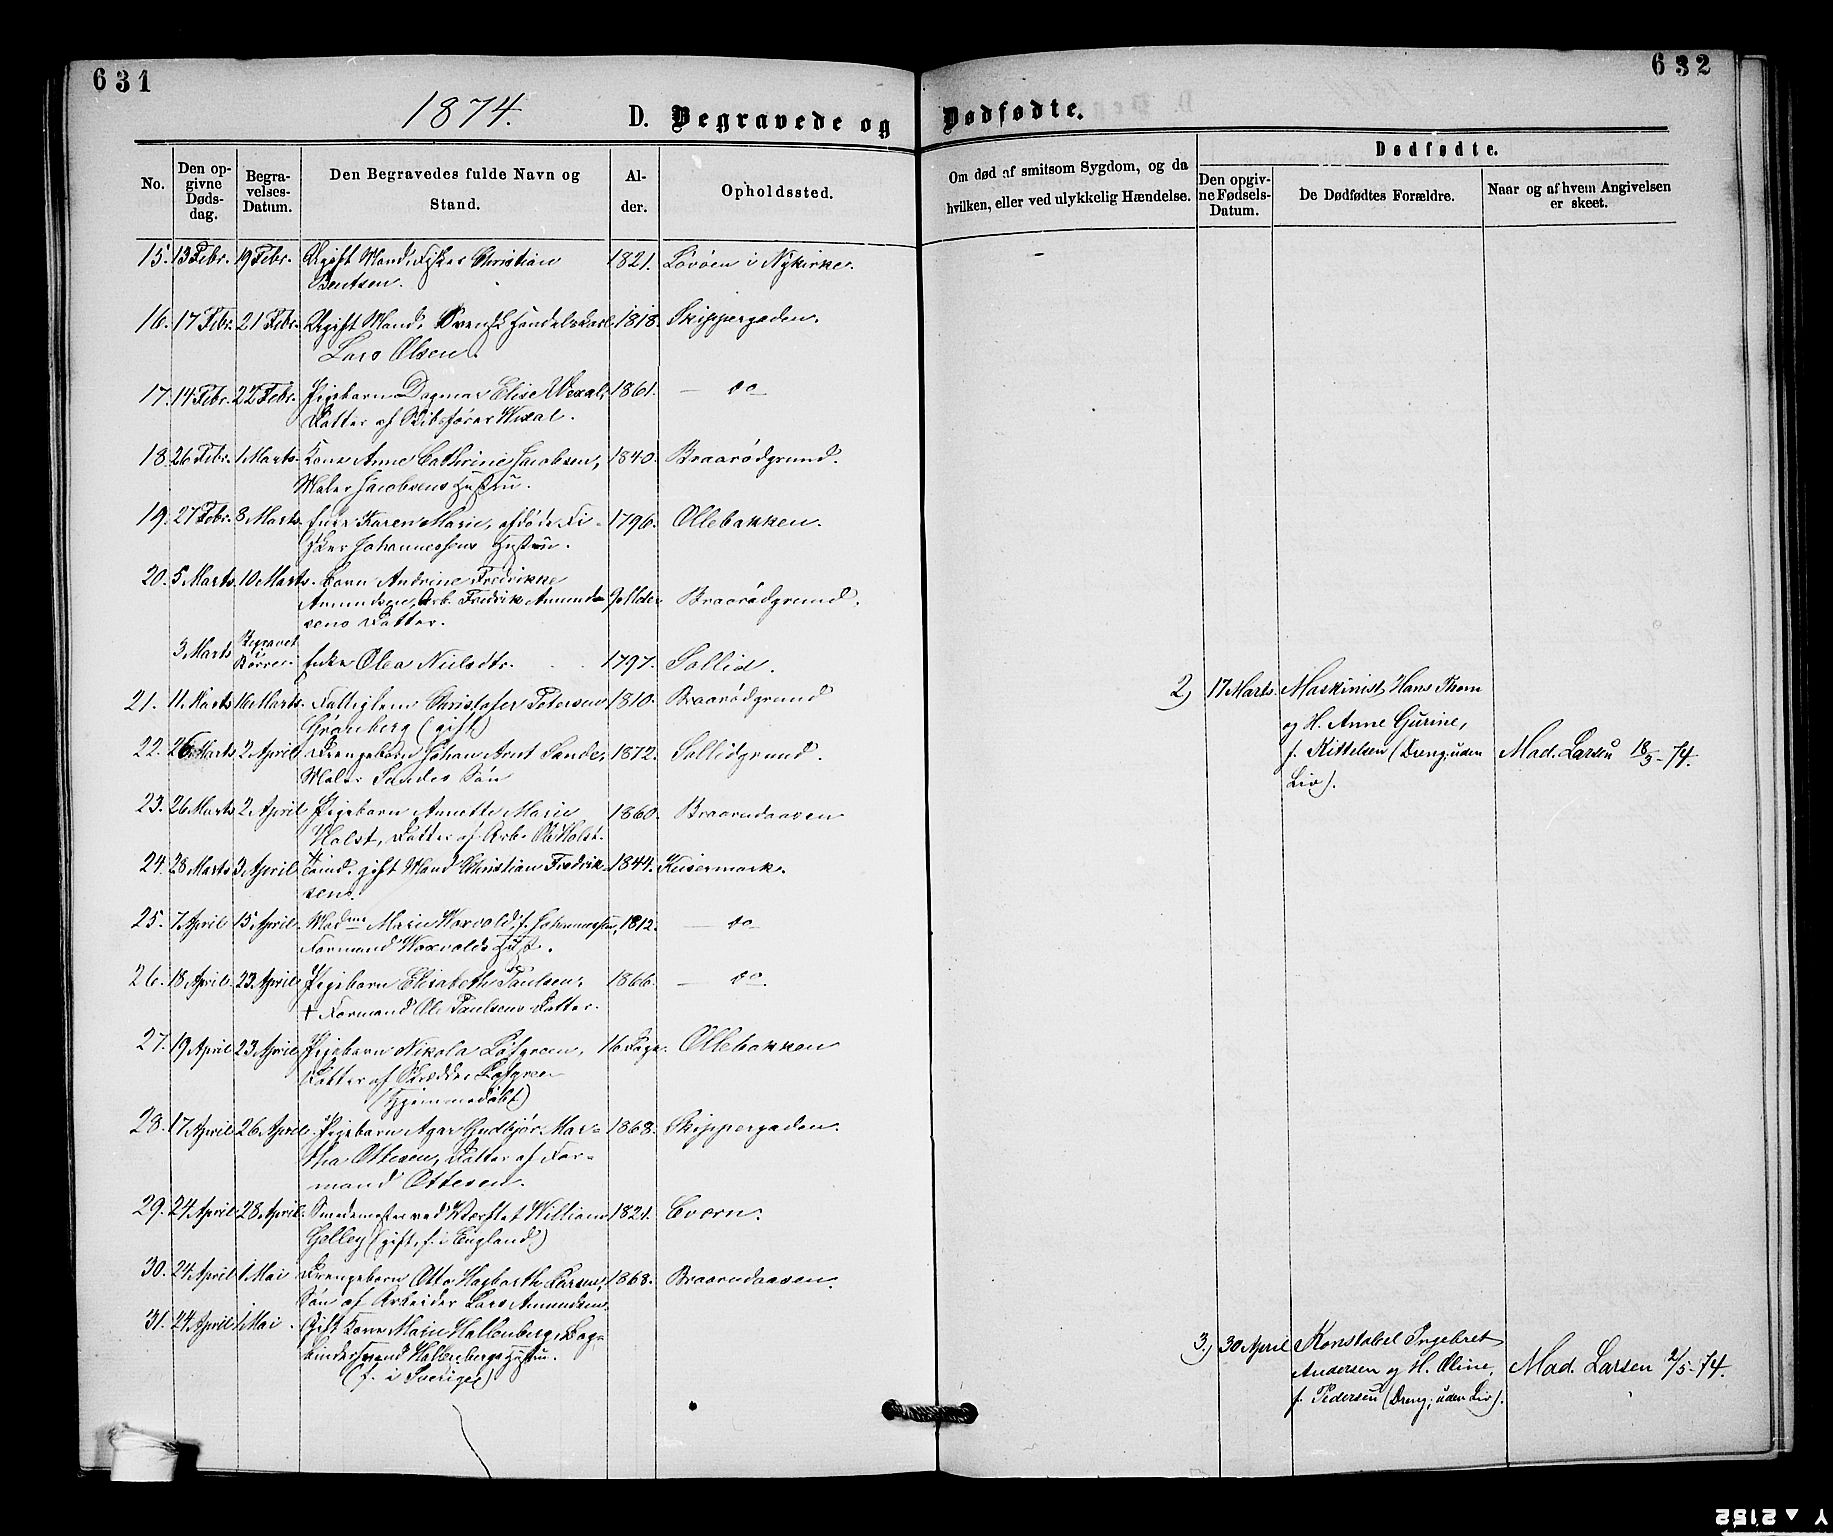 631
632
1874.
D. Begravede og Dødfødte.
No.
Den opgivne Dødsdag.
Begravelses-Datum.
Den Begravedes fulde Navn og Stand.
Alder.
Opholdssted.
Om død af smitsom Sygdom, og da hvilken, eller ved ulykkelig Hændelse.
Dødfødte.
Den opgivne Fødsels-Datum.
De Dødfødtes Forældre.
Naar og af hvem Angivelsen er skeet.
15. 13 Febr. 19 Febr. Ugift Mand, Fisker Christian 1821. Løvøen i Nykirke.
Bentsen.
16. 17 Febr. 21 Febr. Ugift Mand, Svensk Handelskarl 1818. Skippergaden.
Lars Olsen.
17. 14 Febr. 22 Febr. Pigebarn Dagmar Elise Wexal, 1861. — do —
Datter af Skibsfører Wexal.
18. 26 Febr. 1 Marts. Kone Anne Cathrine Jacobsen, 1840. Braarødgrund.
Maler Jacobsens Hustru.
19. 27 Febr. 8 Marts. Enke Karen Marie, afdøde Fi- 1796. Ollebakken.
sker Johannessens Hustru.
20. 5 Marts. 10 Marts. Barn Andrine Fredrikke
Amundsen, Arb. Fredrik Amund- Braarødgrund.
sens Datter.
3 Marts Begravet i Borre. Enke Olea Nielsdtr. 1797. Sollid.
21. 11 Marts 16 Marts. Fattiglem Christofer Petersen 1810. Braarødgrund
Grønberg (gift)
22. 26 Marts 2 April Drengebarn Johan Arnt Sande, 1872. Sollidgrund.
Maler Sandes Søn
23. 26 Marts 2 April Pigebarn Annette Marie 1860. Braarudaasen
Holst, Datter af Arb. Ole Holst.
24. 28 Marts 3 April gift Mand Christian Fredrik- 1844. Keisermark.
sen.
25. 7 April 15 April. Madme Marie Woxvold, f. Johannessen, 1812. — do —
Formand Woxvolds Hust.
26. 18 April 23 April Pigebarn Elisabeth Paulsen, 1866. — do —.
† Formand Ole Paulsens Datter.
27. 19 April 23 April Pigebarn Nikola Løfgreen, 16 Dage. Ollebakken
Datter af Skrædder Løfgreen
(Hjemmedøbt)
28. 17 April 26 April. Pigebarn Agar Gudbjør Mar- 1868. Skippergaden.
tha Ottesen, Datter af For-
mand Ottesen.
29. 24 April 28 April. Smedemester ved Værftet William 1821. Tværn.
Gelley (gift, f. i England.)
30. 24 April 1 Mai Drengebarn Otto Hagbarth Larsen, 1868. Braarudaasen.
Søn af Arbeider Lars Amundsen.
31. 24 April 1 Mai. Gift Kone Marie Hallenberg, Bog-
binder Hallenbergs Hustru.
(f. i Sverige)
2) 17 Marts. Maskinist Hans Thom
og H. Anne Gurine,
f. Kittelsen (Dreng; uden Mad. Larsen 18/3-74.
Liv).
3) 30 April Konstabel Ingebret
Andersen og H. Oline, Mad. Larsen 2/5-74.
f. Pedersen (Dreng; uden Liv).
Y ▲ 2152